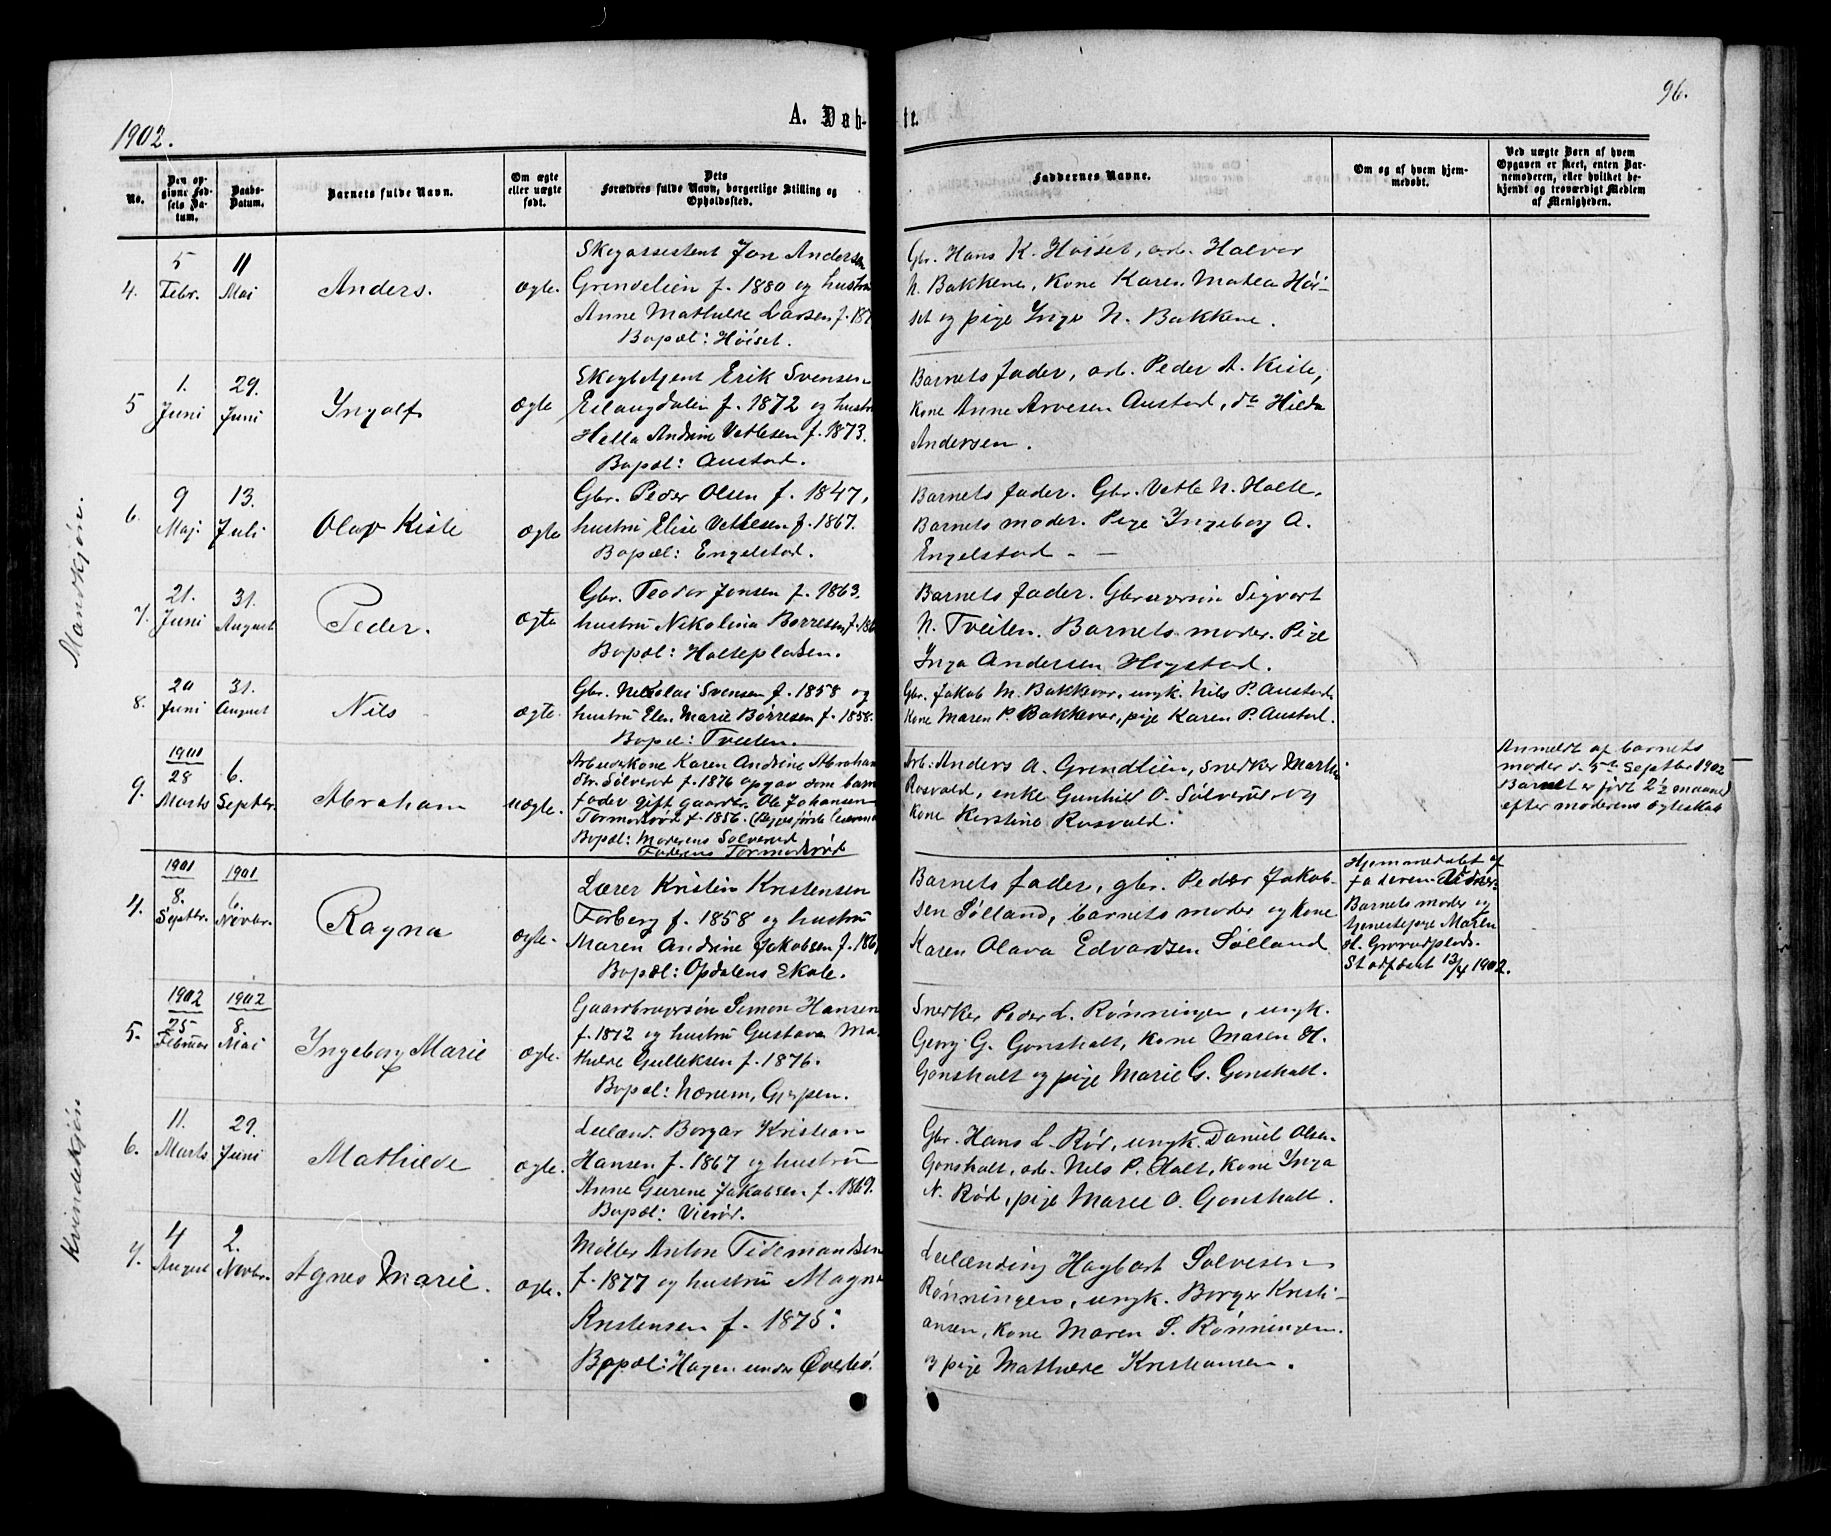 96.
1902.
A. Døb-
te.
No.
Den op-
givne Fød-
sels Da-
tum.
Daabs-
Datum.
Barnets fulde Navn.
Om ægte
eller uægte
født.
Dets
Forældres fulde Navn, borgerlige Stilling og
Opholdssted.
Faddernes Navne.
Om og af hvem hjem-
medøbt.
Ved uægte Børn af hvem
Opgaven er skeet, enten Bar-
nemoderen, eller hvilket be-
kjendt og troværdigt Medlem
af Menigheden.
Mandkjøn.
4.
5
Febr.
11
Mai
Anders.
ægte.
Skogassistent Jon Andersen
Grendelien f. 1880 og hustru
Anne Mathilde Larsen f. 187
Bopæl: Høiset.
Gbr. Hans K. Høiset, arb. Halvor
N. Bakkene, Kone Karen Matea Høi-
set og pige Inger N. Bakkene.
5
1.
Juni
29.
Juni
Ingolf
ægte
Skogbetjent Erik Svensen
f. 1872 og hustru
Hella Andrine Vetlesen f. 1873.
Bopæl: Austad.
Barnets fader, arb. Peder A. Kisle,
Kone Anne Arvesen Austad, do Hilda
Andersen.
6.
9
Maj.
13.
Juli
Olav Kisle
ægte
Gbr. Peder Olsen f. 1847,
hustru Elise Vetlesen f. 1867.
Bopæl: Engelstad.
Barnets fader. Gbr. Vetle N. Holte.
Barnets moder. Pige Ingeborg A.
Engelstad. —
7.
21.
Juni
31.
August
Peder.
ægte
Gbr. Teodor Jensen f. 1863.
hustru Nikolina Børresen f. 186
Bopæl: Holtepladsen.
Barnets fader. Gbrugersøn Sigvart
N. Tveiten. Barnets moder. Pige
Inga Andersen Hogstad.
8.
20
Juni
31.
August
Nils
ægte.
Gbr. Nikolai Svensen f. 1858 og
hustru Elen Marie Børresen f. 1858.
Bopæl: Tveiten.
Gbr. Jakob M. Bakkevar, ungk. Nils P. Austad.
Kone Maren P. Bakkevar, pige Karen P. Austad.
9.
1901
28
Marts
6.
Septbr.
Abraham
uægte.
Arbeiderkone Karen Andrine Abraham
dtr. Sølverød f. 1876 opgav som barne
fader gift gaardbr. Ole Johansen
Tormodsrød f. 1856.
Bopæl: Moderens Solverud
Faderens Tormodsrød
Arb. Anders A. Grendlien, Snedker Martin
Rosvald, enke Gunhild O. Sølverud og
Kone Kirstine Rosvald.
Anmeldt af barnets
moder d. 5te Septbr 1902
Barnet er født 2½ maaned
efter moderens egteskab
Kvindekjøn
4.
1901
8.
Septbr.
1901
6.
Novbr.
Ragna
ægte.
Lærer Kristen Kristensen
Forberg f. 1858 og hustru
Maren Andrine Jakobsen f. 186
Bopæl: Opdalens Skole.
Barnets fader, gbr. Peder Jakob-
sen Sølland, barnets moder og Kone
Karen Olava Edvardsen Sølland
Hjemmedøbt af
faderen.
Barnets moder og
tjenestepige Maren
H. Gravadplads.
Stadfæstet 13/4 1902.
5.
1902
25
Februar
1902
8.
Mai
Ingeborg Marie
ægte.
Gaardbrugersøn Simon Hansen
f. 1872 og hustru Gustava Ma-
thilde Gulleksen f. 1876.
Bopæl: Nærum, Gjerpen.
Snedker Peder L. Rønningen, ungk.
Georg G. Gonsholt, Kone Maren H.
Gonsholt og pige Marie G. Gonsholt.
6.
11.
Marts
29.
Juni
Mathilde
ægte.
Leilænd. Borgar Kristian
Hansen f. 1867 og hustru
Anne Gurene Jakobsen f. 1869.
Bopæl: Vierød.
Gbr. Hans L. Rød, ungk. Daniel Olsen
Gonsholt, arb. Nils P. Holt, Kone Inga
N. Rød, pige Maree O. Gonsholt.
7.
4
August
2.
Novbr.
Agnes Marie.
ægte.
Møller Anton Tidemandsen
f. 1877 og hustru Magna
Kristensen f. 1875.
Bopæl: Hagen under Øverbø.
Leilænding Hagbart Solvesen
Rønningen, ungk. Borger Kristi-
ansen, Kone Maren S. Rønningen
og pige Mathilde Kristiansen.